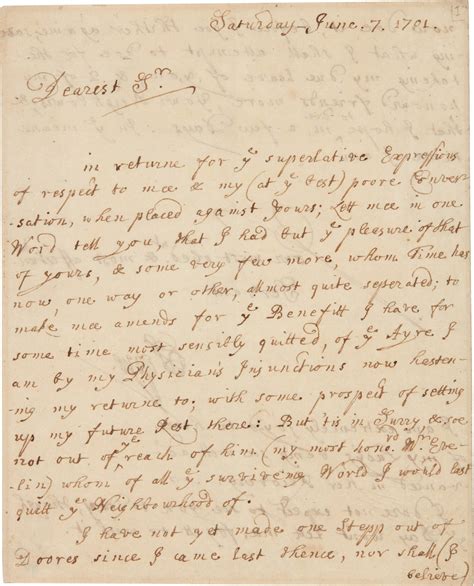 Saturday June. 7. 1701.
Dearest Sr.
in returne for ye superlative Expressions
of respect to mee & my (at ye best) poore Conver-
sation, when placed against yours; Lett mee in one
Word tell you, that I had but ye pleasure of that
of yours, & some very few more, whom Time has
now, one way or other, almost quite seperated; to
make mee amends for ye Benefitt I have, for
some time most sensibly quitted, of ye Ayre I
am by my Physicians Injunctions now hasten-
ing my returne to; with some prospect of setting
up my future Rest there: But 'tis in Surry, & soe
not out of ye reach of him (my most honord Mr. Eve-
lin) whom of all ye surviveing World I would last
quitt ye Neighbourhood of.
I have not yet made one Stepp out of
Doores since I came last thence, nor shall (I
believe)